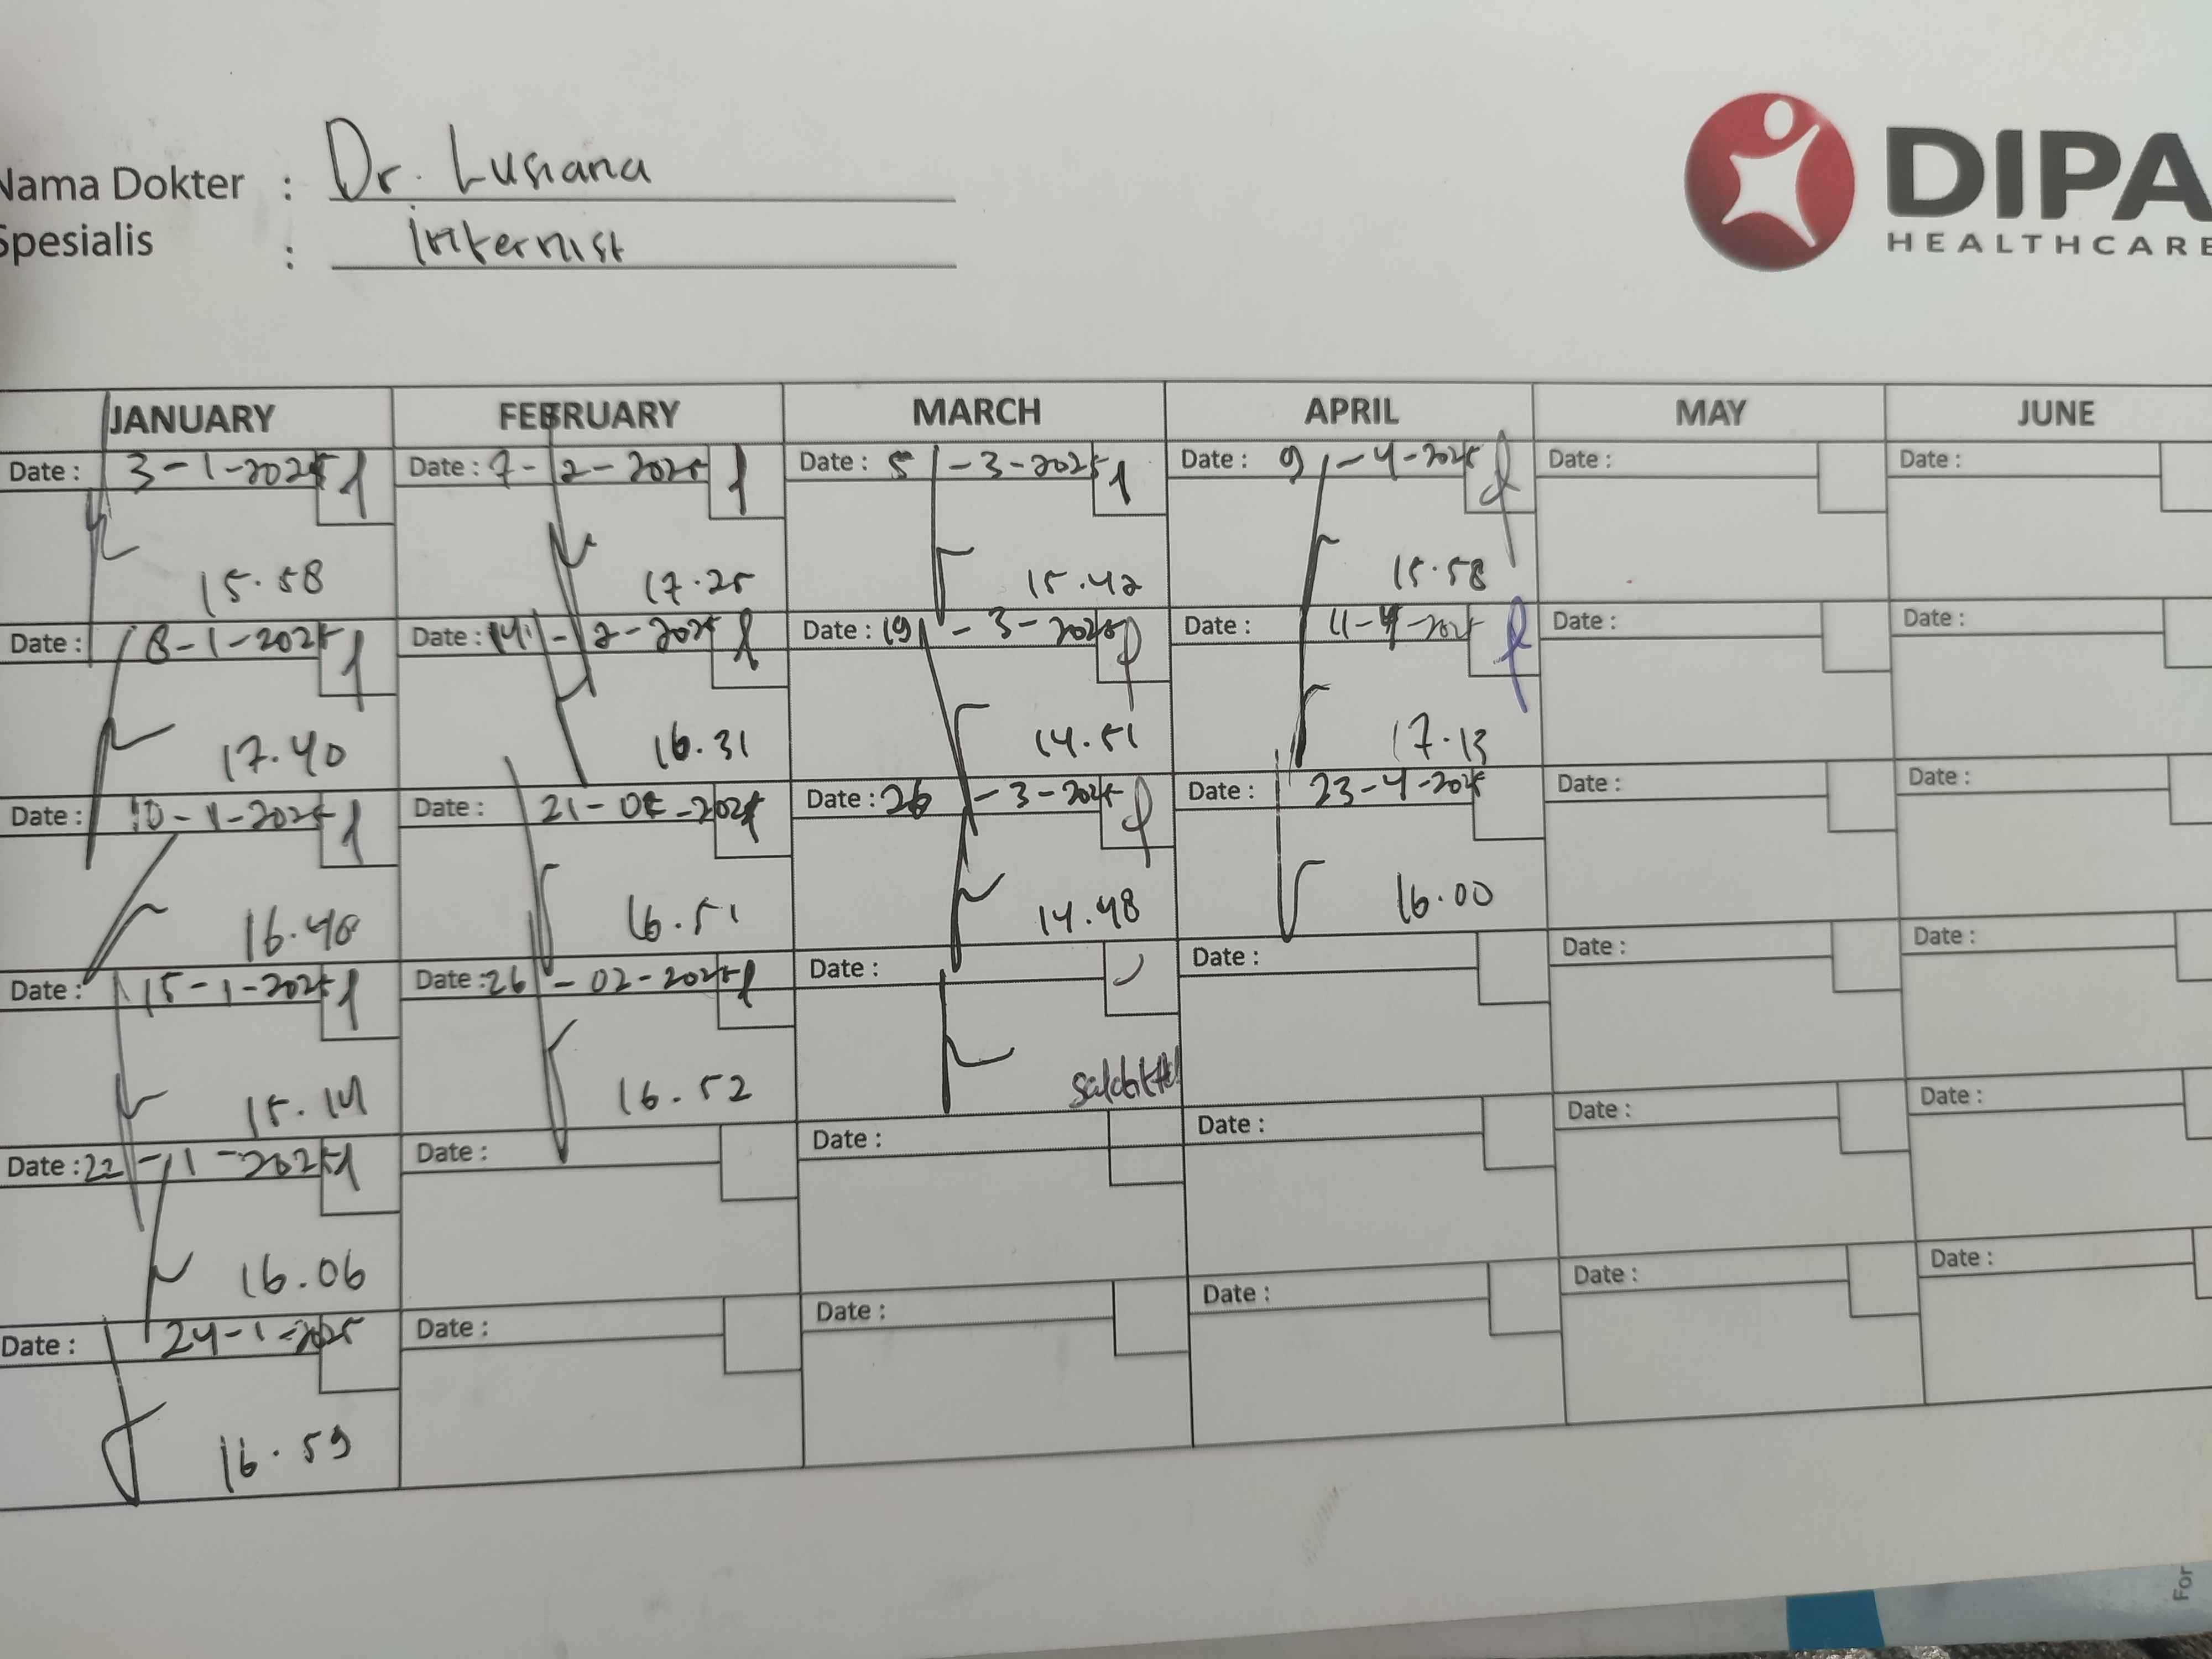 Nama Dokter : Dr. Lusiana
Spesialis : Internist
DIPA
HEALTHCARE
JANUARY FEBRUARY MARCH APRIL MAY JUNE
Date : 3-1-2025 Date : 7-2-2025 Date : 5-3-2025 Date : 9-4-2025 Date : Date :
15.58 17.25 15.42 15.58
Date : 8-1-2025 Date : 14-2-2025 Date : 19-3-2025 Date : 11-4-2025 Date : Date :
17.40 16.31 14.51 17.13
Date : 10-1-2025 Date : 21-02-2025 Date : 26-3-2025 Date : 23-4-2025 Date : Date :
16.48 16.51 14.48 16.00
Date : 15-1-2025 Date : 26-02-2025 Date : Date : Date : Date :
15.14 16.52
Date : 22-1-2025 Date : Date : Date : Date : Date :
16.06
Date : 24-1-2025 Date : Date : Date : Date : Date :
16.59
For